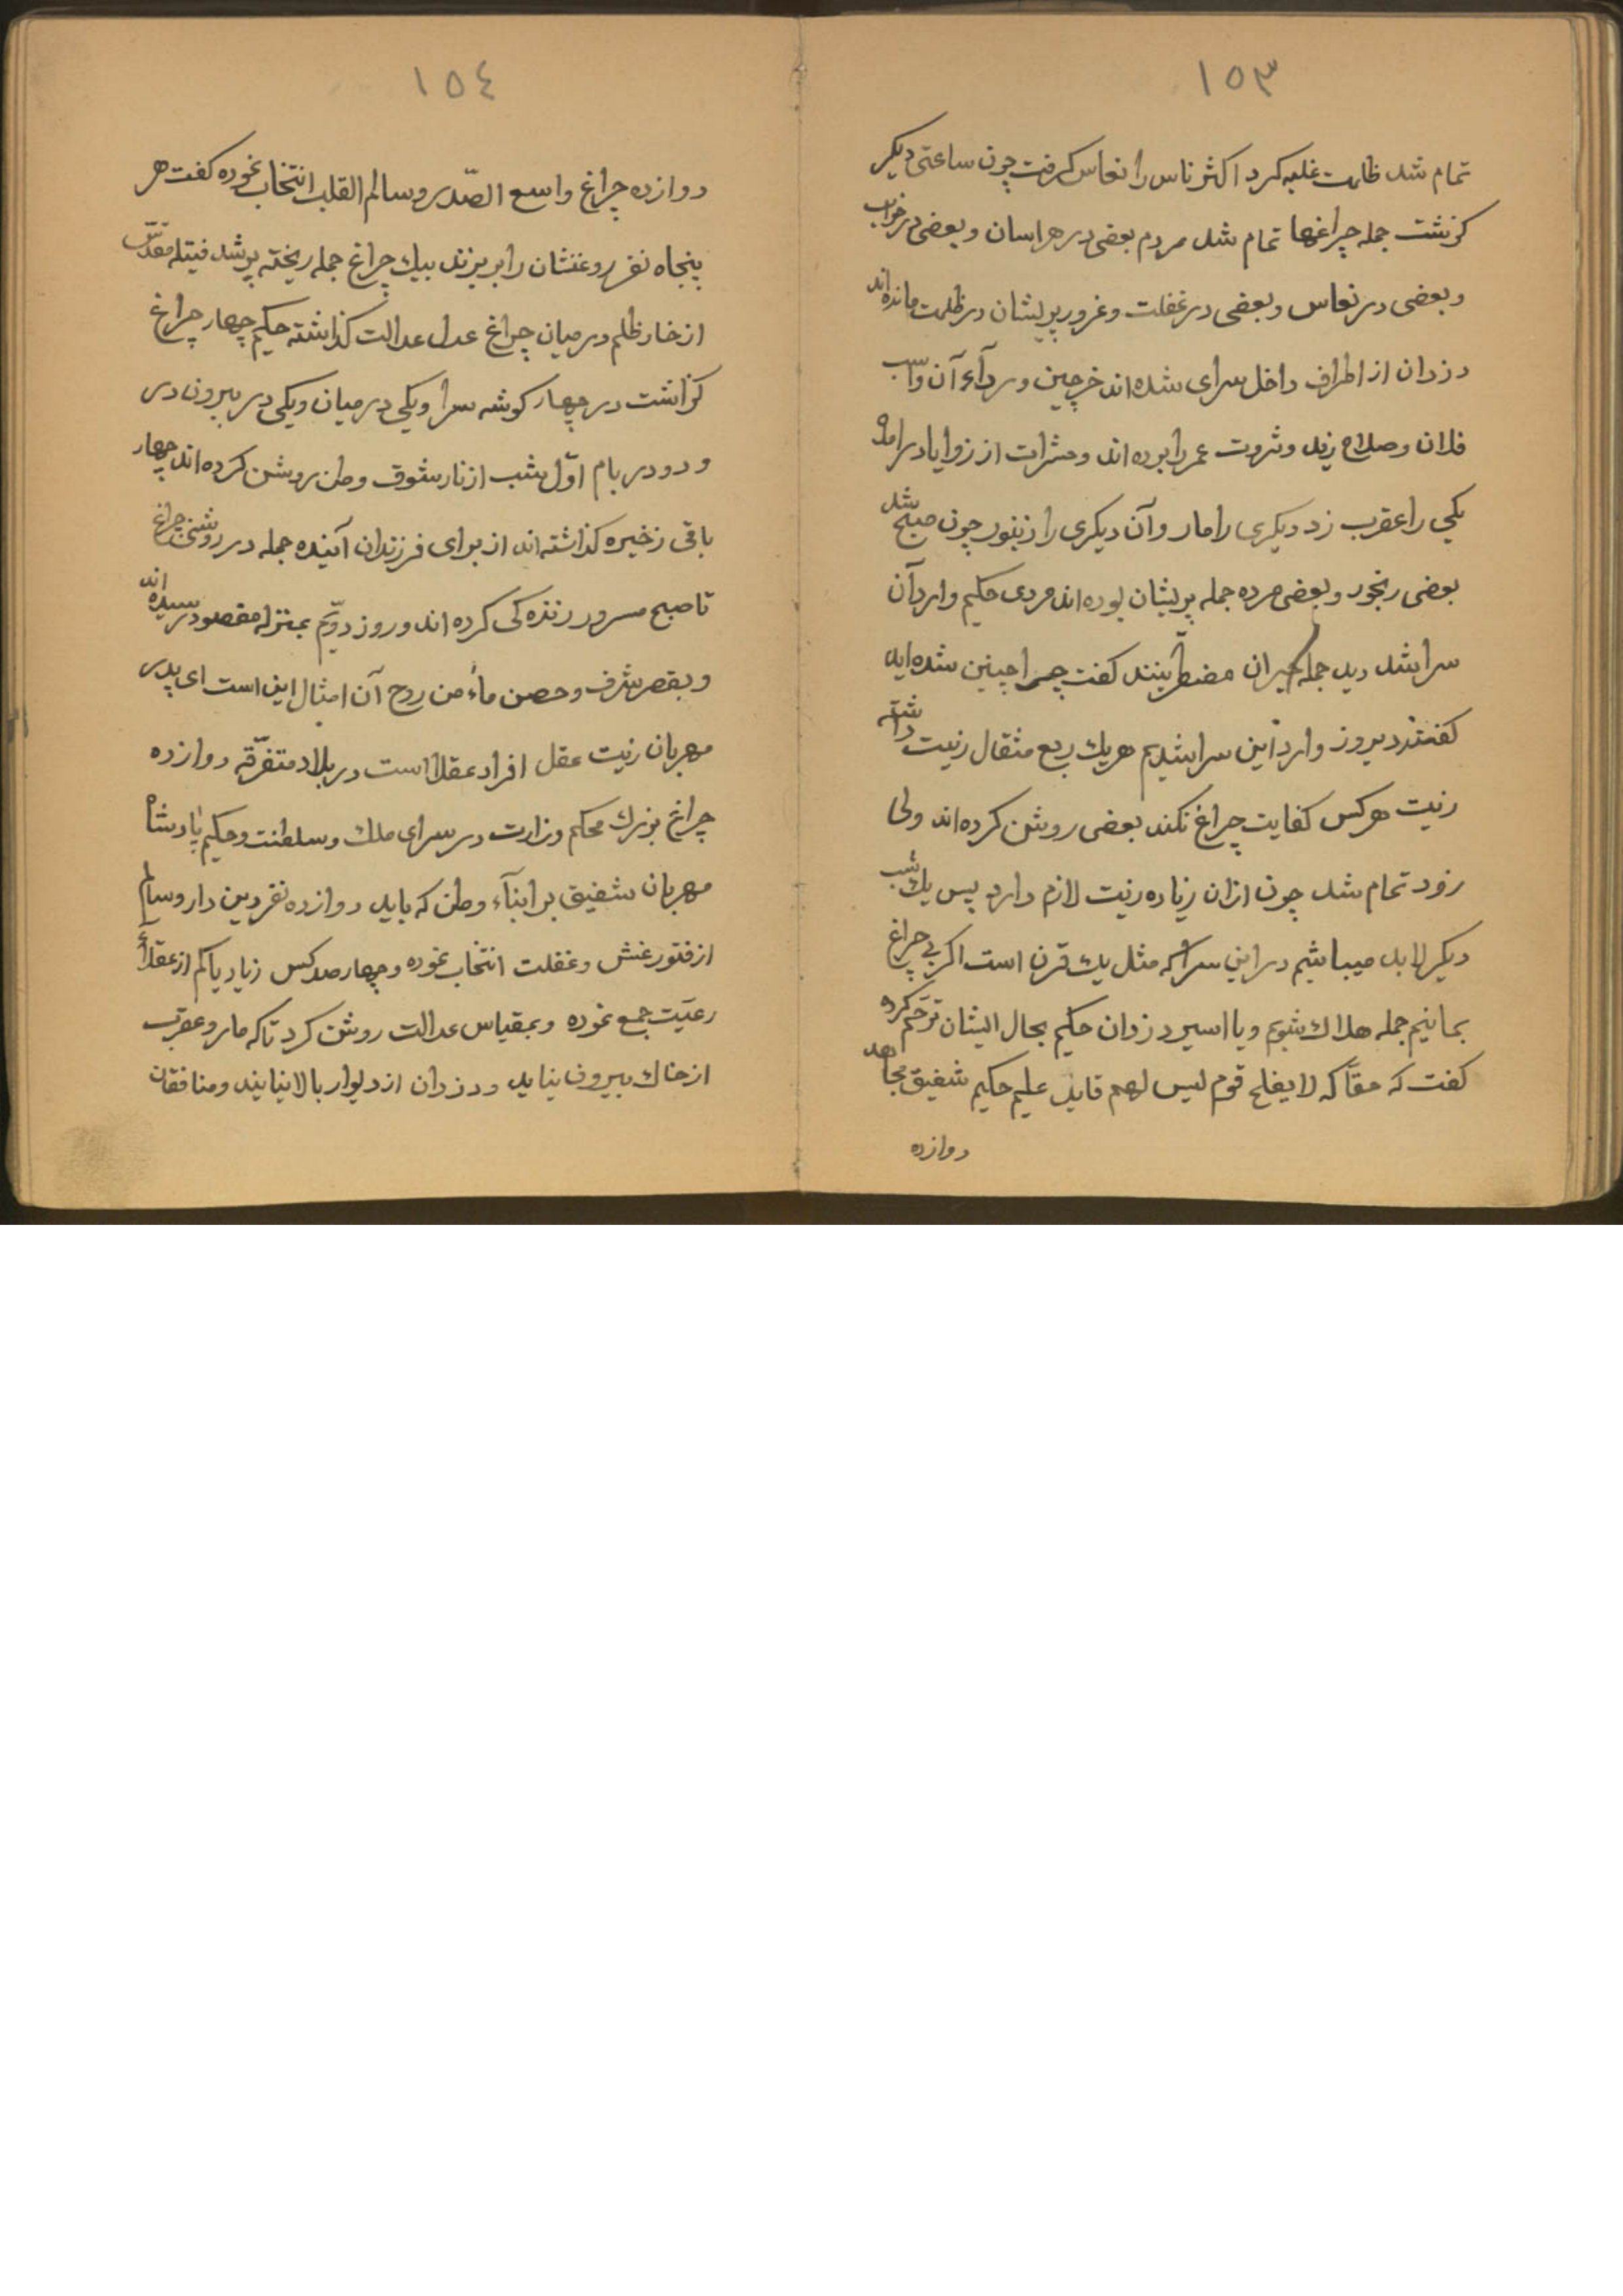 ١٥٣
تمام شد ظلمت غلبه کرد اکثر ناس را نعاس کرفت چون ساعتی دیکر
کزشت جمله چراغها تمام شد مردم بعضی در هراسان و بعضی در خواب
و بعضی در نعاس و بعضی در غفلت و غرور پریشان در ظلمت مانده اند
دزدان از اطراف داخل سرای شده اند خرچین و رداء آن واسب
فلان وصلاح زید وثروت عمر را برده اند وحشرات از زوایا درامده
یکی را عقرب زد دیکری را مار وآن دیکری را زنبور چون صبح شد
بعضی رنجور و بعضی مرده جمله پریشان بوده اند مردی حکیم وارد آن
سرا شد دید جمله حیران مضطربند کفت چرا چنین شده اید
کفتند دیروز وارد این سرا شدیم هریک ربع مثقال زیت داشته
زیت هرکس کفایت چراغ نکند بعضی روشن کرده اند ولی
زود تمام شد چون ازان زیاده زیت لازم دارد پس یک شب
دیکر لابد میباشیم در این سرا که مثل یک قرن است اکر بی چراغ
بمانیم جمله هلاک شویم ویا اسیر دزدان حکیم بحال ایشان ترحّم کرده
کفت که حقاً که لا یفلح قوم لیس لهم قاید علیم حکیم شفیق مجاهد
دوازده
١٥٤
دوازده چراغ واسع الصّدر وسالم القلب انتخاب نموده کفت هر
پنجاه نفر روغنشان را بریزند بیک چراغ جمله ریخته پر شد فیتله مقدّس
از خار ظلم در میان چراغ عدل عدالت کذاشته حکیم چهار چراغ
کزاشت در چهار کوشه سرا ویکی در میان ویکی در بیرون در
و دو در بام اوّل شب از نار شوق وطن روشن کرده اند چهار
باقی زخیره کذاشته اند از برای فرزندان آینده جمله در روشنی چراغ
تا صبح مسرور زنده کی کرده اند و روز دوّیم بمنزله مقصود رسیده اند
و بقصر شرف وحصن ماء من روح آن امثال این است ای پدر
مهربان زیت عقل افراد عقلا است در بلاد متفرّقه دوازده
چراغ بزرک محکم وزارت در سرای ملک وسلطنت وحکیم پادشاه
مهربان شفیق بر ابناء وطن که باید دوازده نفر دین دار وسالم
از فتور غش وغفلت انتخاب نموده وچهار صد کس زیاد یا کم از عقلاء
رعیّت جمع نموده وبمقیاس عدالت روشن کرد تا که مار وعقرب
از خاک بیرون نیاید ودزدان از دیوار بالا نیایند ومنافقان